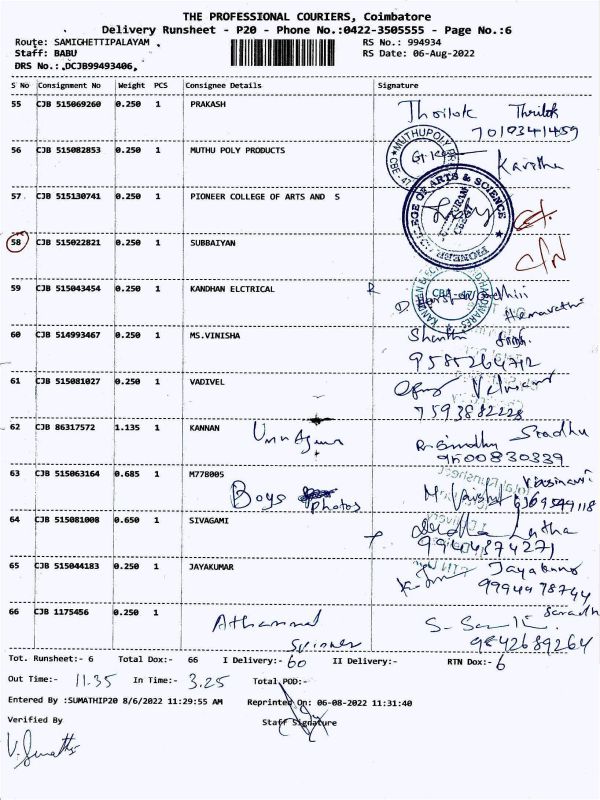 THE PROFESSIONAL COURIERS, Coimbatore
Delivery Runsheet - P20 - Phone No.:0422-3505555 - Page No.:6
Route: SAMIGHETTIPALAYAM
RS No.: 994934
Staff: BABU
RS Date: 06-Aug-2022
DRS No.: DCJB99493406
S No Consignment No Weight PCS Consignee Details Signature
55 CJB 515069260 0.250 1 PRAKASH Thrilok Thrilok
7010341459
56 CJB 515082853 0.250 1 MUTHU POLY PRODUCTS Kavitha
57 CJB 515130741 0.250 1 PIONEER COLLEGE OF ARTS AND S
58 CJB 515022821 0.250 1 SUBBAIYAN
59 CJB 515043454 0.250 1 KANDHAN ELCTRICAL
60 CJB 514993467 0.250 1 MS.VINISHA Shanthi
9585264712
61 CJB 515081027 0.250 1 VADIVEL
7593882228
62 CJB 86317572 1.135 1 KANNAN Sradhu
9500830339
63 CJB 515063164 0.685 1 M778005
Boys photos
64 CJB 515081008 0.650 1 SIVAGAMI Latha
99404874271
65 CJB 515044183 0.250 1 JAYAKUMAR
9994978744
66 CJB 1175456 0.250 1 Athammal
9842689264
Tot. Runsheet:- 6 Total Dox:- 66 I Delivery:- 60 II Delivery:- RTN Dox:- 6
Out Time:- 11.35 In Time:- 3.25 Total POD:-
Entered By :SUMATHIP20 8/6/2022 11:29:55 AM Reprinted On: 06-08-2022 11:31:40
Verified By Staff Signature